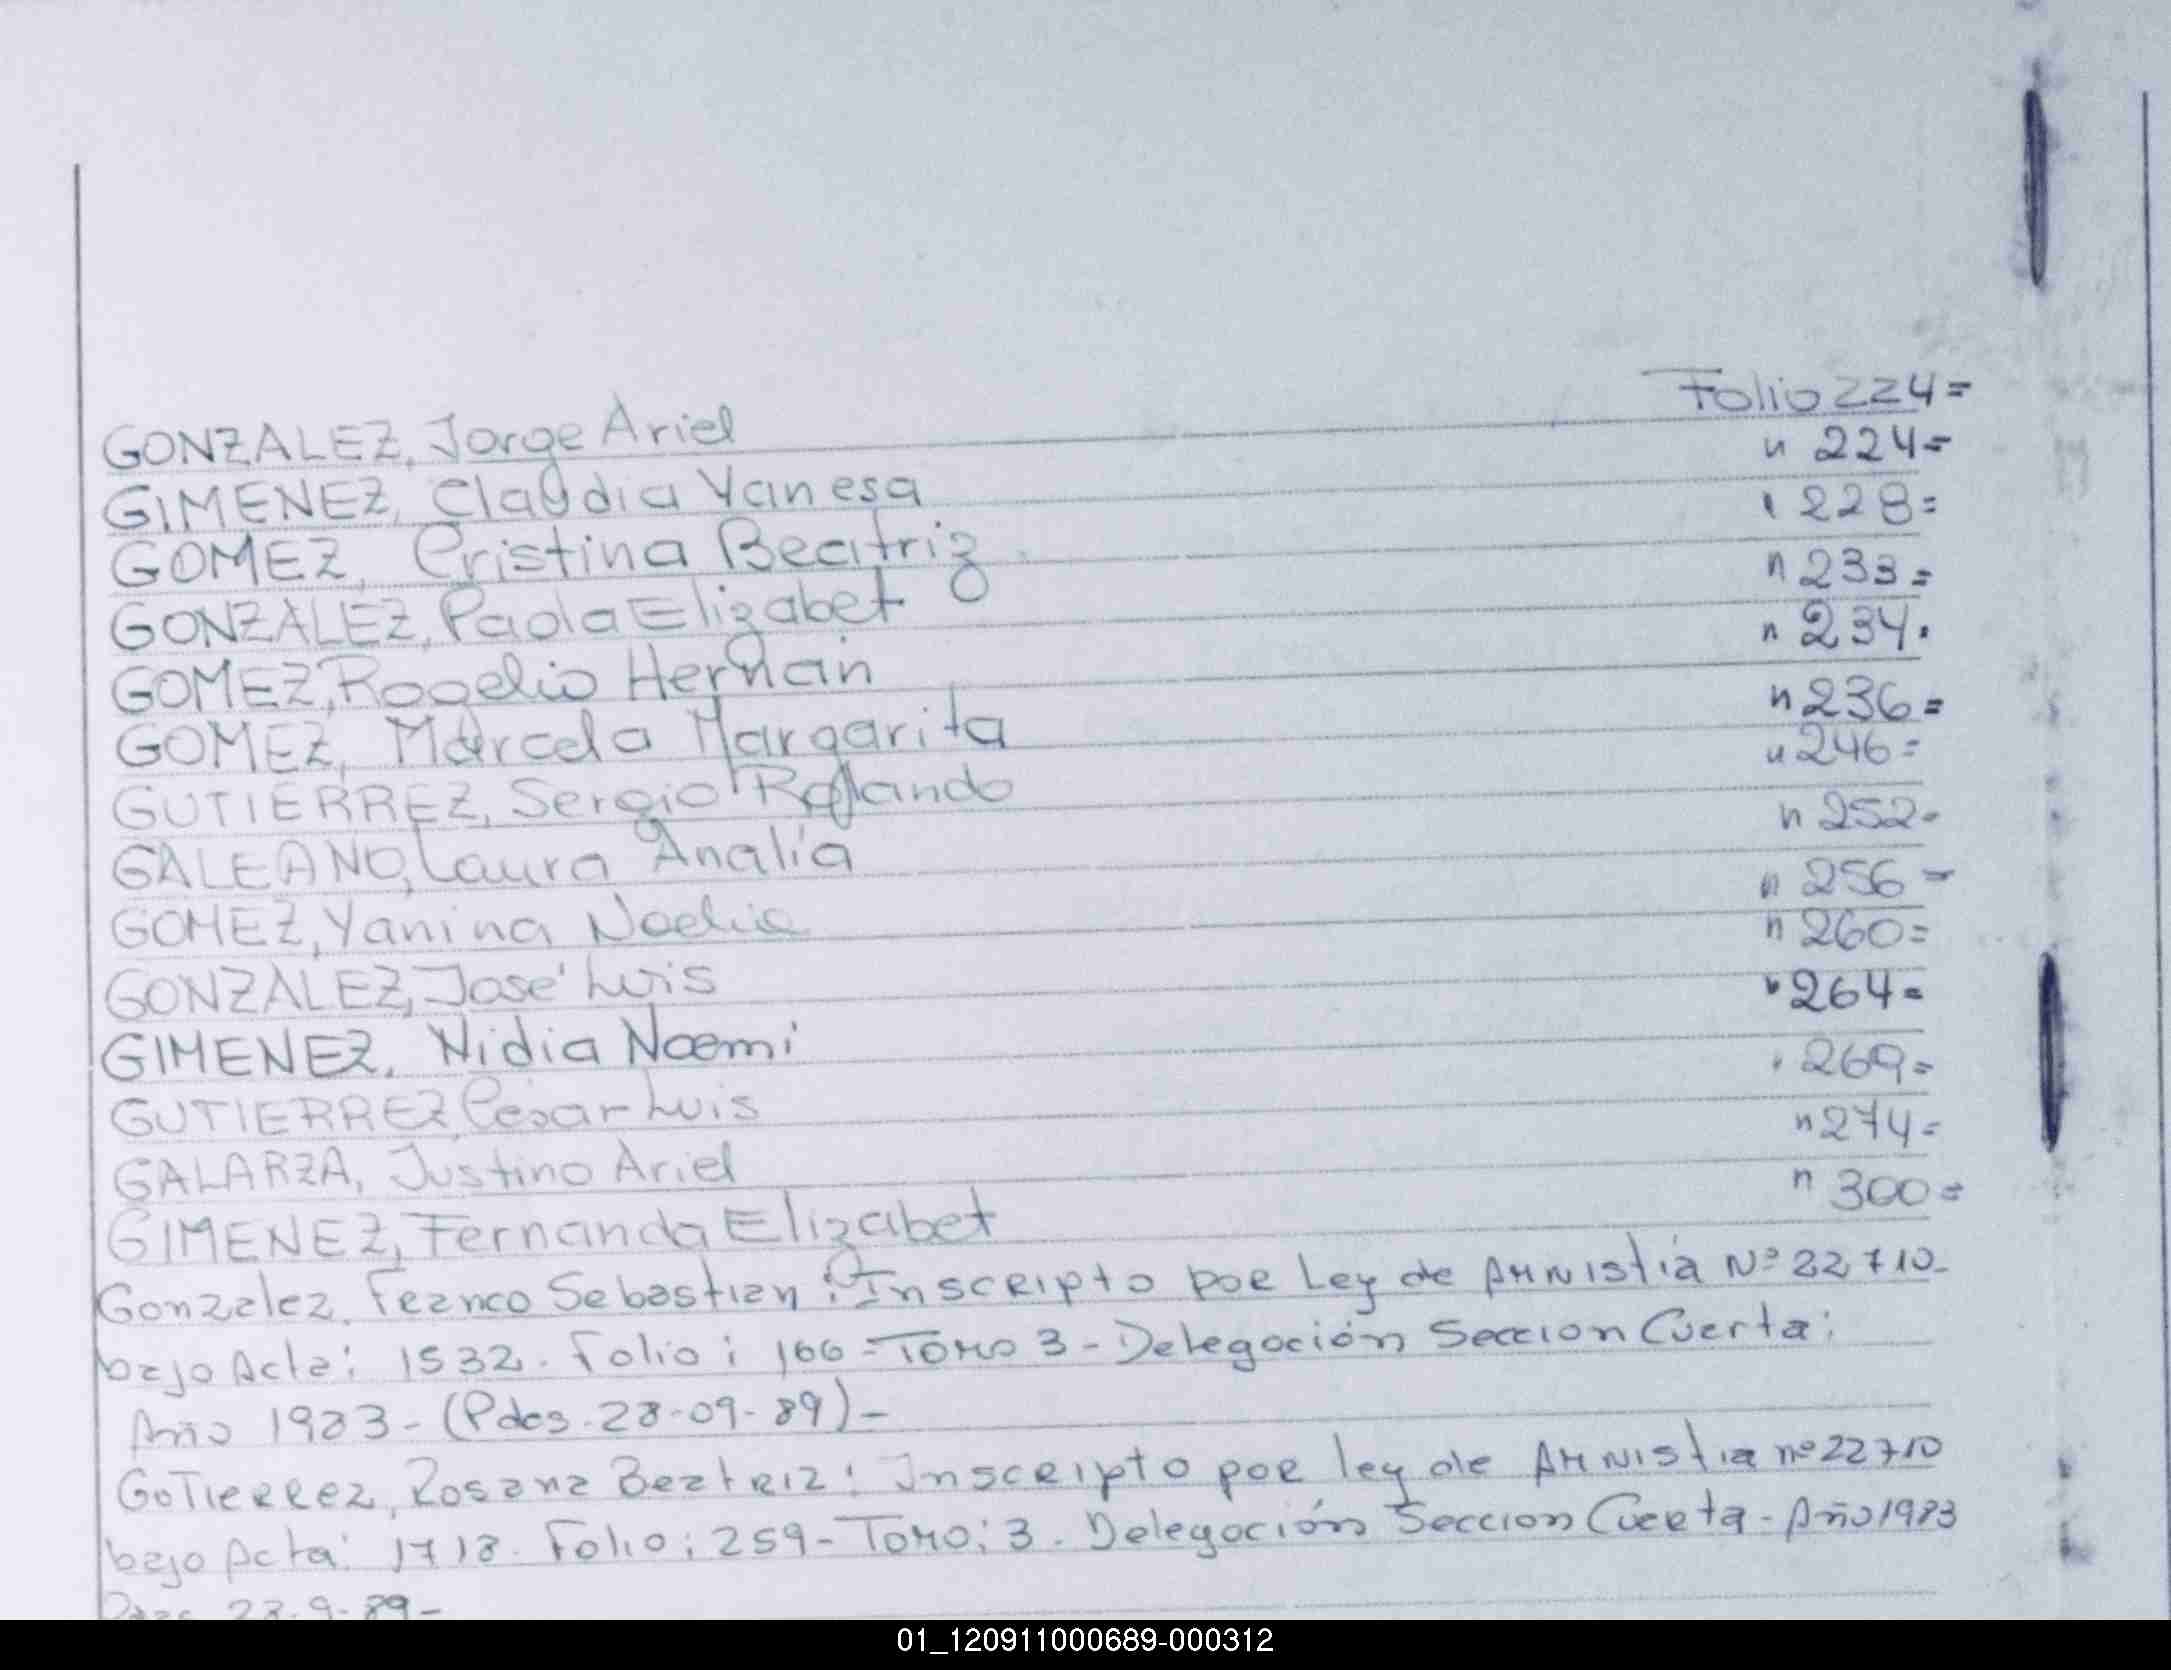 GONZALEZ, Jorge Ariel Folio 224=
GIMENEZ, Claudia Yanesa " 224=
GOMEZ, Cristina Beatriz " 228=
GONZALEZ, Paola Elizabet " 233=
GOMEZ, Rogelio Hernan " 234.
GOMEZ, Marcela Margarita " 236=
GUTIERREZ, Sergio Rolando " 246=
GALEANO, Laura Analía " 252-
GOMEZ, Yanina Noelia " 256-
GONZALEZ, José Luis " 260=
GIMENEZ, Nidia Noemi " 264=
GUTIERREZ, Cesar Luis " 269=
GALARZA, Justino Ariel " 274=
GIMENEZ, Fernanda Elizabet " 300=
Gonzalez, Franco Sebastian: Inscripto por Ley de Amnistia Nº 22710-
bajo Acta: 1532. Folio: 166-Tomo 3-Delegación Seccion Cuarta:
Año 1983-(Pdas. 28-09-89)-
GuTierrez, Rosana Beatriz: Inscripto por ley de Amnistia nº 22710
bajo Acta: 1718. Folio: 259-Tomo: 3. Delegación Seccion Cuarta-Año 1983
28-9-89-
01_120911000689-000312